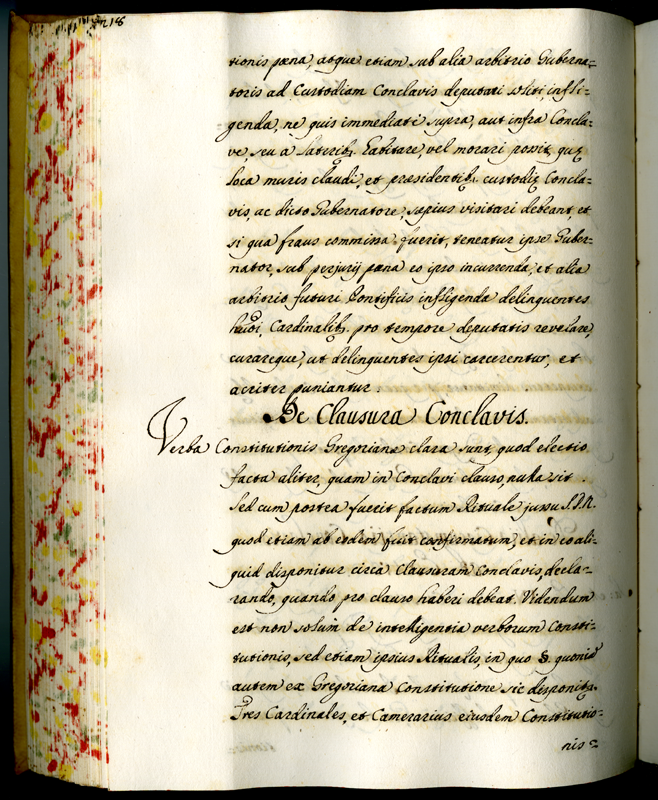 n 18
tionis pæna, atque etiam sub alia arbitrio Guberna=
toris ad Custodiam Conclavis deputari soliti, infli=
genda, ne quis immediatè supra, aut infra Concla=
ve, seu a laterib. habitare, vel morari possit, quæ
loca muris claudi, et præsidentib. custodiæ Concla=
vis, ac dicto Gubernatore, sæpius visitari debeant, et
si qua fraus commissa fuerit, teneatur ipse Guber=
nator, sub perjurij pæna eo ipso incurrenda, et alia
arbitrio futuri Pontificis infligenda delinquentes
Cardinalib. pro tempore deputatis revelare,
curareque, ut delinquentes ipsi carcerentur, et
acriter puniantur.
De Clausura Conclavis.
Verba Constitutionis Gregorianæ clara sunt, quod electio
facta aliter, quam in Conclavi clauso, nulla sit.
Sed cum postea fuerit factum Rituale jussu S.D.N.
quod etiam ab eodem fuit confirmatum, et in eo ali=
quid disponitur circa Clausuram Conclavis, decla=
rando, quando pro clauso haberi debeat. Videndum
est non solùm de intelligentia verborum Consti=
tutionis, sed etiam ipsius Ritualis, in quo §. quonià
autem ex Gregoriana Constitutione sic disponit.
Tres Cardinales, et Camerarius eiusdem Constitutio=
nis =